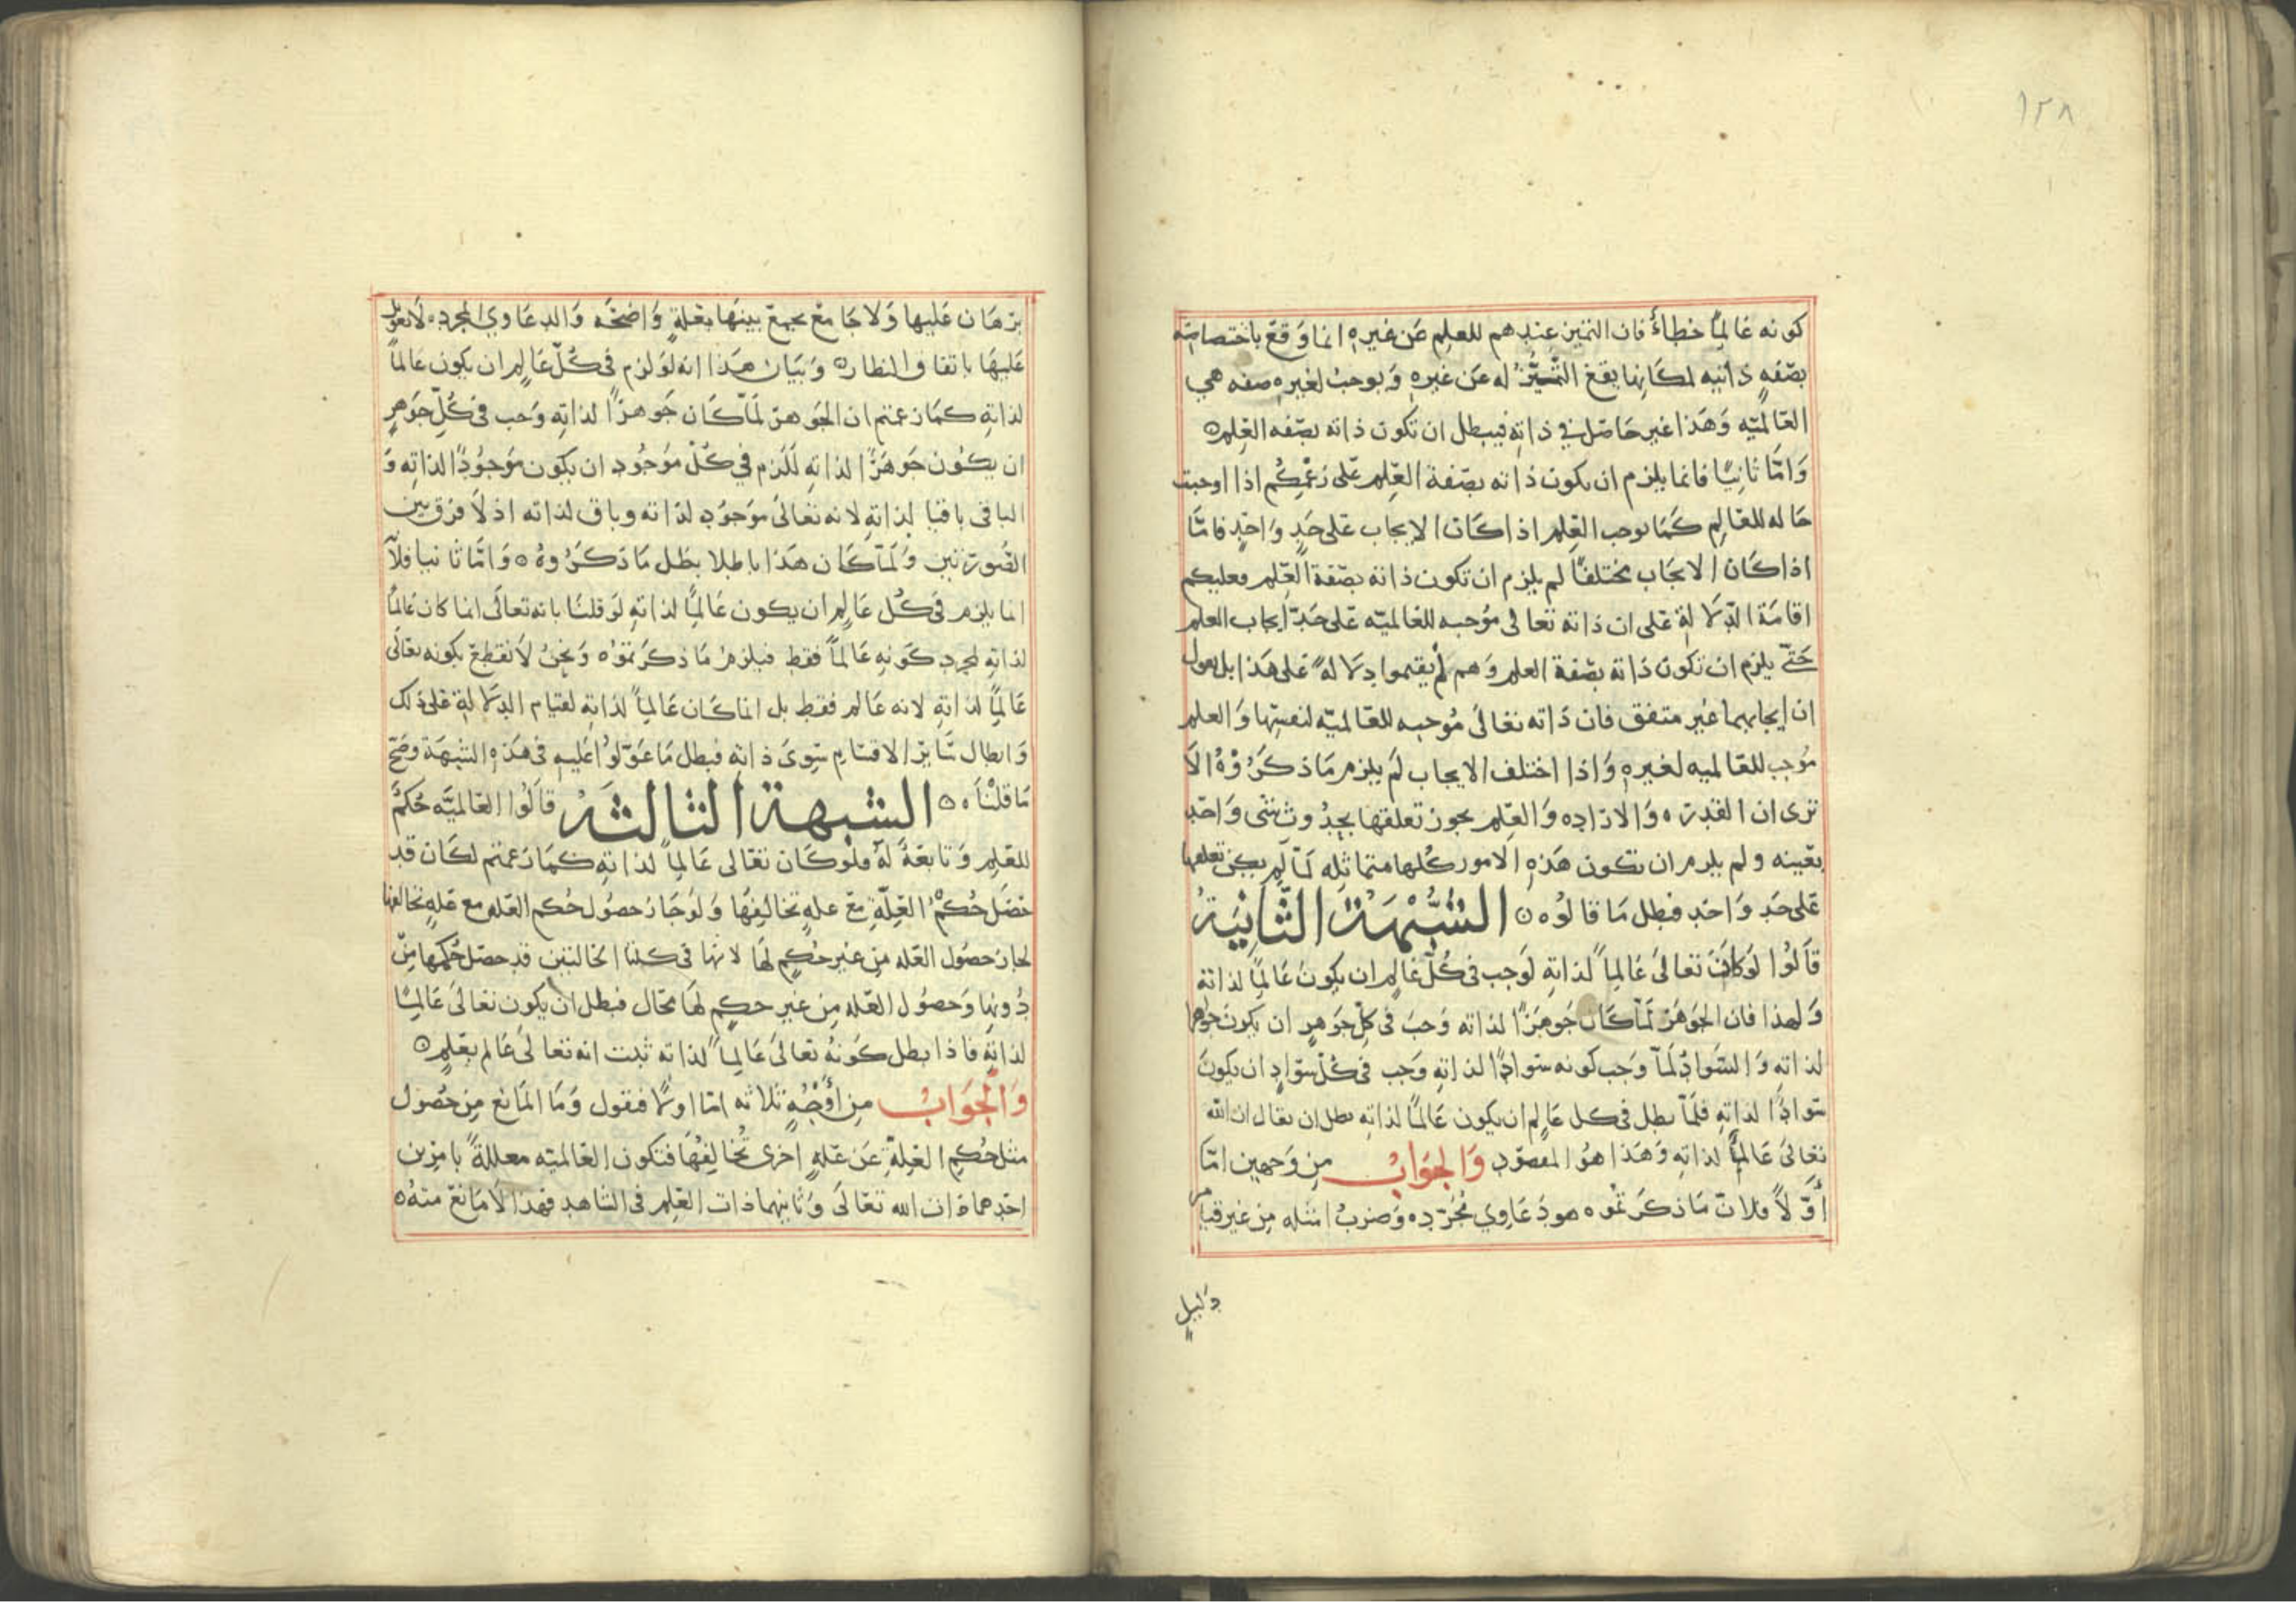 ١٢٨
كونه عَالِمًا خطأ فان التميز عندهم للعلم عن غيره انما وَقعَ باختصاصه
بصّفهٍ ذاتيه لمكانها يقع التّميّزُ له عَن غيرهِ وَيوجبُ لغيره صفه هي
العَالميّه وَهَذا غير حَاصل في ذاتهِ فيبطل ان تكون ذاته بصّفه العِلم ه
وَامّا ثانيًا فانما يلزم ان يكون ذاته بصّفة العِلم على زعْمِكُم اذا اوجبت
حَاله للعَالِم كَمَا يوجب العِلم اذا كَان الايجاب عَلى حَدٍ وَاحدٍ فامّا
اذا كَان الايجَاب مختلفًا لم يلزم ان تكون ذاته بصّفة العِلم فعليكم
اقامَة الدّلالة عَلى ان ذاته تعالى مُوجبه للعالميّه عَلى حَدّ ايجاب العلم
حَتّى يلزم ان تكون ذاته بصّفة العلم وَهم لم يقيموا دِلالهً عَلى هَذا بل نقول
ان ايجابهما غير متفق فان ذاته تعَالى مُوجبه للعَالميّه لنفسِها وَالعلم
مُوجب للعَالميه لغيرهِ وَاذا اختلف الايجاب لَم يلزم مَا ذكرُوْهُ الاَ
ترى ان القدره وَالارَاده وَالعِلم يجوز تعلقها بحِدُوثِ شى وَاحدٍ
بعَينه ولم يلزم ان تكون هَذهِ الامور كُلها متماثله لمّا لم يكن تعلقها
عَلى حَدٍ وَاحدٍ فبطل مَا قالوُه ه الشُّبْهَةُ الثَّانِيَةُ
قَالُوا لَوكَانَ تعَالىَ عَالِماً لذاتهِ لَوجب فى كُلّ عَالِم ان يكونُ عَالِماً لذاتهِ
وَلهذا فان الجَوهَرْ لمّا كَان جَوهَرًا لذاته وَجبَ فى كلّ جَوهر ان يكونَ جَوهرا
لذاتهِ وَالسّوادُ لمّا وَجب كونه سَوادًا لذاتهِ وَجب فى كُلّ سَوادٍ ان يكونَ
سَوادًا لذاتهِ فلمّا بطل فى كل عَالِم ان يكون عَالمًا لذاتهِ بطل ان يقال ان الله
تعَالىَ عَالِمًا لذاتهِ وَهَذا هوُ المقصوُد وَالجوَابُ من وَجهين امّا
أَوّلاً فلانّ مَا ذكرَتُموُه هو دَعَاوِي مُجَرّده وَضربُ امثله مِن غير قيام
دَليلٍ
برَهَان عَليها وَلا جَامعَ يجمعَ بينهَا بعَلةٍ وَاضحَه وَالدعَاوي المجرده لا يعَول
عَليهَا باتفاق النظار ه وَبَيانُ هَذا انه لَو لزم فى كُلّ عَالم ان يكون عَالماً
لذاتهِ كمَا زعَمتم ان الجَوهر لمّا كَان جَوهرًا لذاتهِ وَجب فى كُلّ جَوهرٍ
ان يكُون جَوهَرًا لذاتهِ لَلَزم فى كُلّ مَوجُودٍ ان يكون مَوجُودًا لذاتهِ وَ
الباقى باقيا لِذاتهِ لانه تعَالىَ موَجوُد لذاته وباق لذاته اذ لاَ فرَق بين
الصُورتين وَلمّا كَان هَذا باطِلا بطل مَا ذكرُوهُ ه وَامّا ثانيا فلاَنّ
انما يلزم فى كُل عَالِم ان يكون عَالِمًا لذاتهِ لَو قلنَا بانه تعالَى انما كان عَالِمًا
لذاتهِ لمجردِ كَونهِ عَالماً فقط فيلزم مَا ذكرَتموُه وَنحنُ لاَ نقطعَ بكونه تعَالَى
عَالِمًا لذاتهِ لانه عَالم فقط بل انما كَان عَالِمًا لذاتهِ لقيام الدِلالة عَلى ذلك
وَابطال سَايرِ الاقسَامِ سِوىَ ذاتهِ فبطل مَا عَوّلوُا عَليهِ فى هَذهِ الشبهَة وصَحّ
مَا قلنْاَه ه الشبهة الثالثَهُ قالُوا العَالميَّه حُكمٌ
للعَلمِ وَتابعَةً لَهُ فلوكَان تعَالى عَالِماً لذاتهِ كمَا زعَمتم لكَان قد
حَصَل حُكمُ العِلّةِ معَ علهٍ تخالِفِهَا وَلوَجَاز حصُول حُكم العَله مع عَلهٍ تخالفها
لجاز حصُول العَله مِن غير حُكمٍ لهَا لانهَا فى كلتا الحَالتين قد حصَل حُكمها مِن
دُونِها وَحصُول العَله مِن غير حكمٍ لهَا محَال فبطل ان يكون تعَالىَ عَالِمًا
لذاتهِ فاذا بطل كَونهُ تعَالىَ عَالِماً لذاته ثبت انه تعَالىَ عَالم بعَلمٍ ه
وَالْجوَابُ مِن أَوْجُهٍ ثلاثه امّا اولًا فنقول وَمَا المَانع مِن حُصُول
مثل حُكمِ العِلةِ عَن عَلهٍ اخرى تُخالِفهُا فتكون العَالميّه معللةً بامرَين
احَدِهمَا ذات الله تعَالَى وَثانيهمَا ذات العَلم فى الشاهدِ فهَذا لاَ مَانعَ منهُ ه